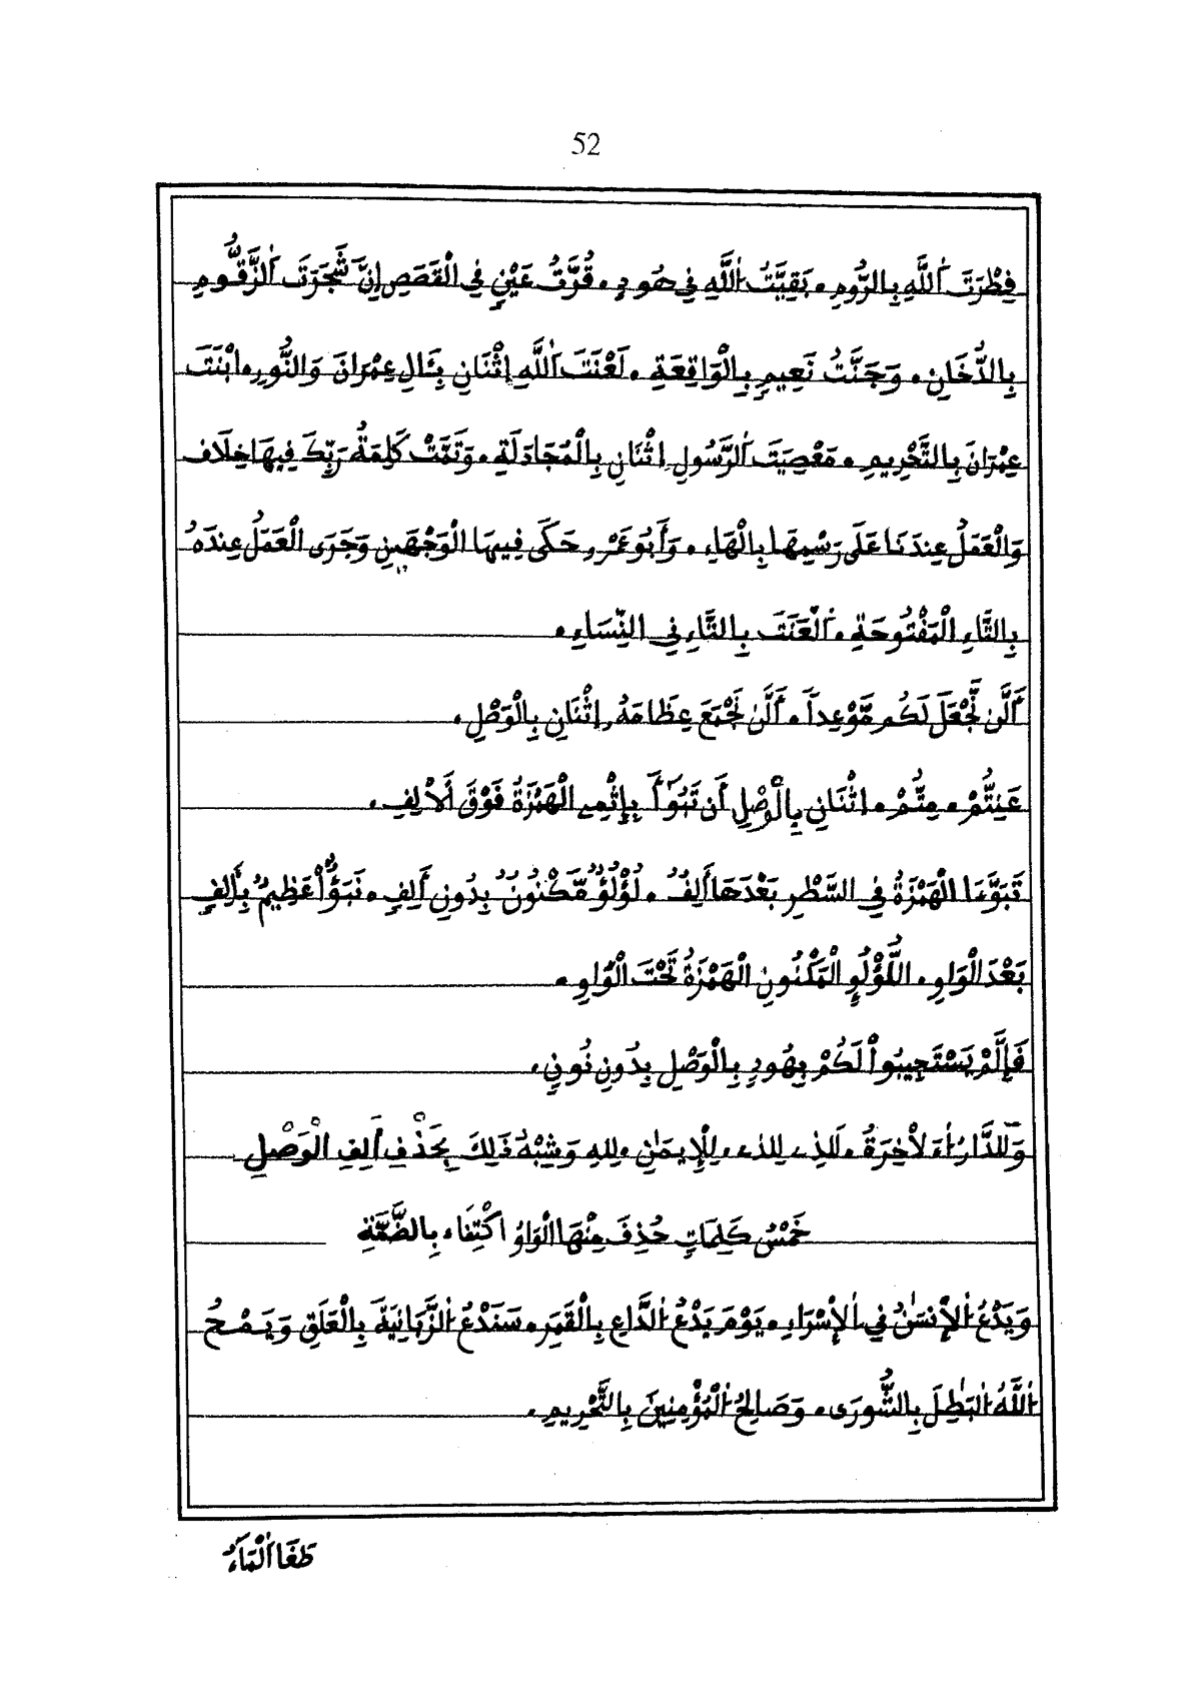 52
فِطْرَتَ اَللَّهِ بِالرُّومِ. بَقِيَّتُ اُللَّهِ فِي هُودٍ. قُرَّتُ عَيْنٍ فِي الْقَصَصِ إِنَّ شَجَرَتَ اَلزَّقُّومِ
بِالدُّخَانِ. وَجَنَّتُ نَعِيمٍ بِالْوَاقِعَةِ. لَعْنَتَ اَللَّهِ اِثْنَانِ بِـَٔالِ عِمْرَانَ وَالنُّورِ. اَبْنَتَ
عِمْرَانَ بِالتَّحْرِيمِ. مَعْصِيَتِ اِلرَّسُولِ اِثْنَانِ بِالْمُجَادَلَةِ. وَتَمَّتْ كَلِمَةُ رَبِّكَ فِيهَا خِلَاف
وَالْعَمَلُ عِندَنَا عَلَى رَسْمِهَا بِالْهَاءِ. وَأَبُو عَمْرٍو حَكَى فِيهَا الْوَجْهَيْنِ وَجَرَى الْعَمَلُ عِندَهُ
بِالتَّاءِ الْمَفْتُوحَةِ. اَلْعَنَتَ بِالتَّاءِ فِي النِّسَاءِ.
أَلَّن نَّجْعَلَ لَكُم مَّوْعِداً. أَلَّن نَّجْمَعَ عِظَامَهُ. اِثْنَانِ بِالْوَصْلِ.
عَنِتُّمْ. مِتُّمْ. اِثْنَانِ بِالْوَصْلِ أَن تَبُوٓأَ بِإِثْمِے الْهَمْزَةُ فَوْقَ أَلْأَلِفِ.
تَبَوَّءَا الْهَمْزَةُ فِي السَّطْرِ بَعْدَهَا أَلِفٌ. لُؤْلُؤٌ مَّكْنُونٌ بِدُونِ أَلِفٍ. نَبَؤٌاْ عَظِيمٌ بِأَلِفٍ
بَعْدَ الْوَاوِ. اللُّؤْلُؤِ الْمَكْنُونِ الْهَمْزَةُ تَحْتَ الْوَاوِ.
فَإِلَّمْ يَسْتَجِيبُواْ لَكُمْ بِهُودٍ بِالْوَصْلِ بِدُونِ نُونٍ.
وَلَلدَّارُ اُ۬لَاخِرَةُ. لَلذِے لِلذِے. لِلْإِيمَٰنِ. لِلهِ وَشِبْهُ ذَٰلِكَ بِحَذْفِ أَلِفِ الْوَصْلِ
خَمْسُ كَلِمَاتٍ حُذِفَ مِنْهَا الْوَاوُ اكْتِفَاء بِالضَّمَّةِ
وَيَدْعُ اُلْإِنسَٰنُ فِي الْإِسْرَاءِ. يَوْمَ يَدْعُ اُلدَّاعِ بِالْقَمَرِ. سَنَدْعُ اُلزَّبَانِيَةَ بِالْعَلَقِ وَيَمْحُ
اُللَّهُ اُلْبَٰطِلَ بِالشُّورَى. وَصَالِحُ اُلْمُؤْمِنِينَ بِالتَّحْرِيمِ.
طَغَا اَلْمَآءُ